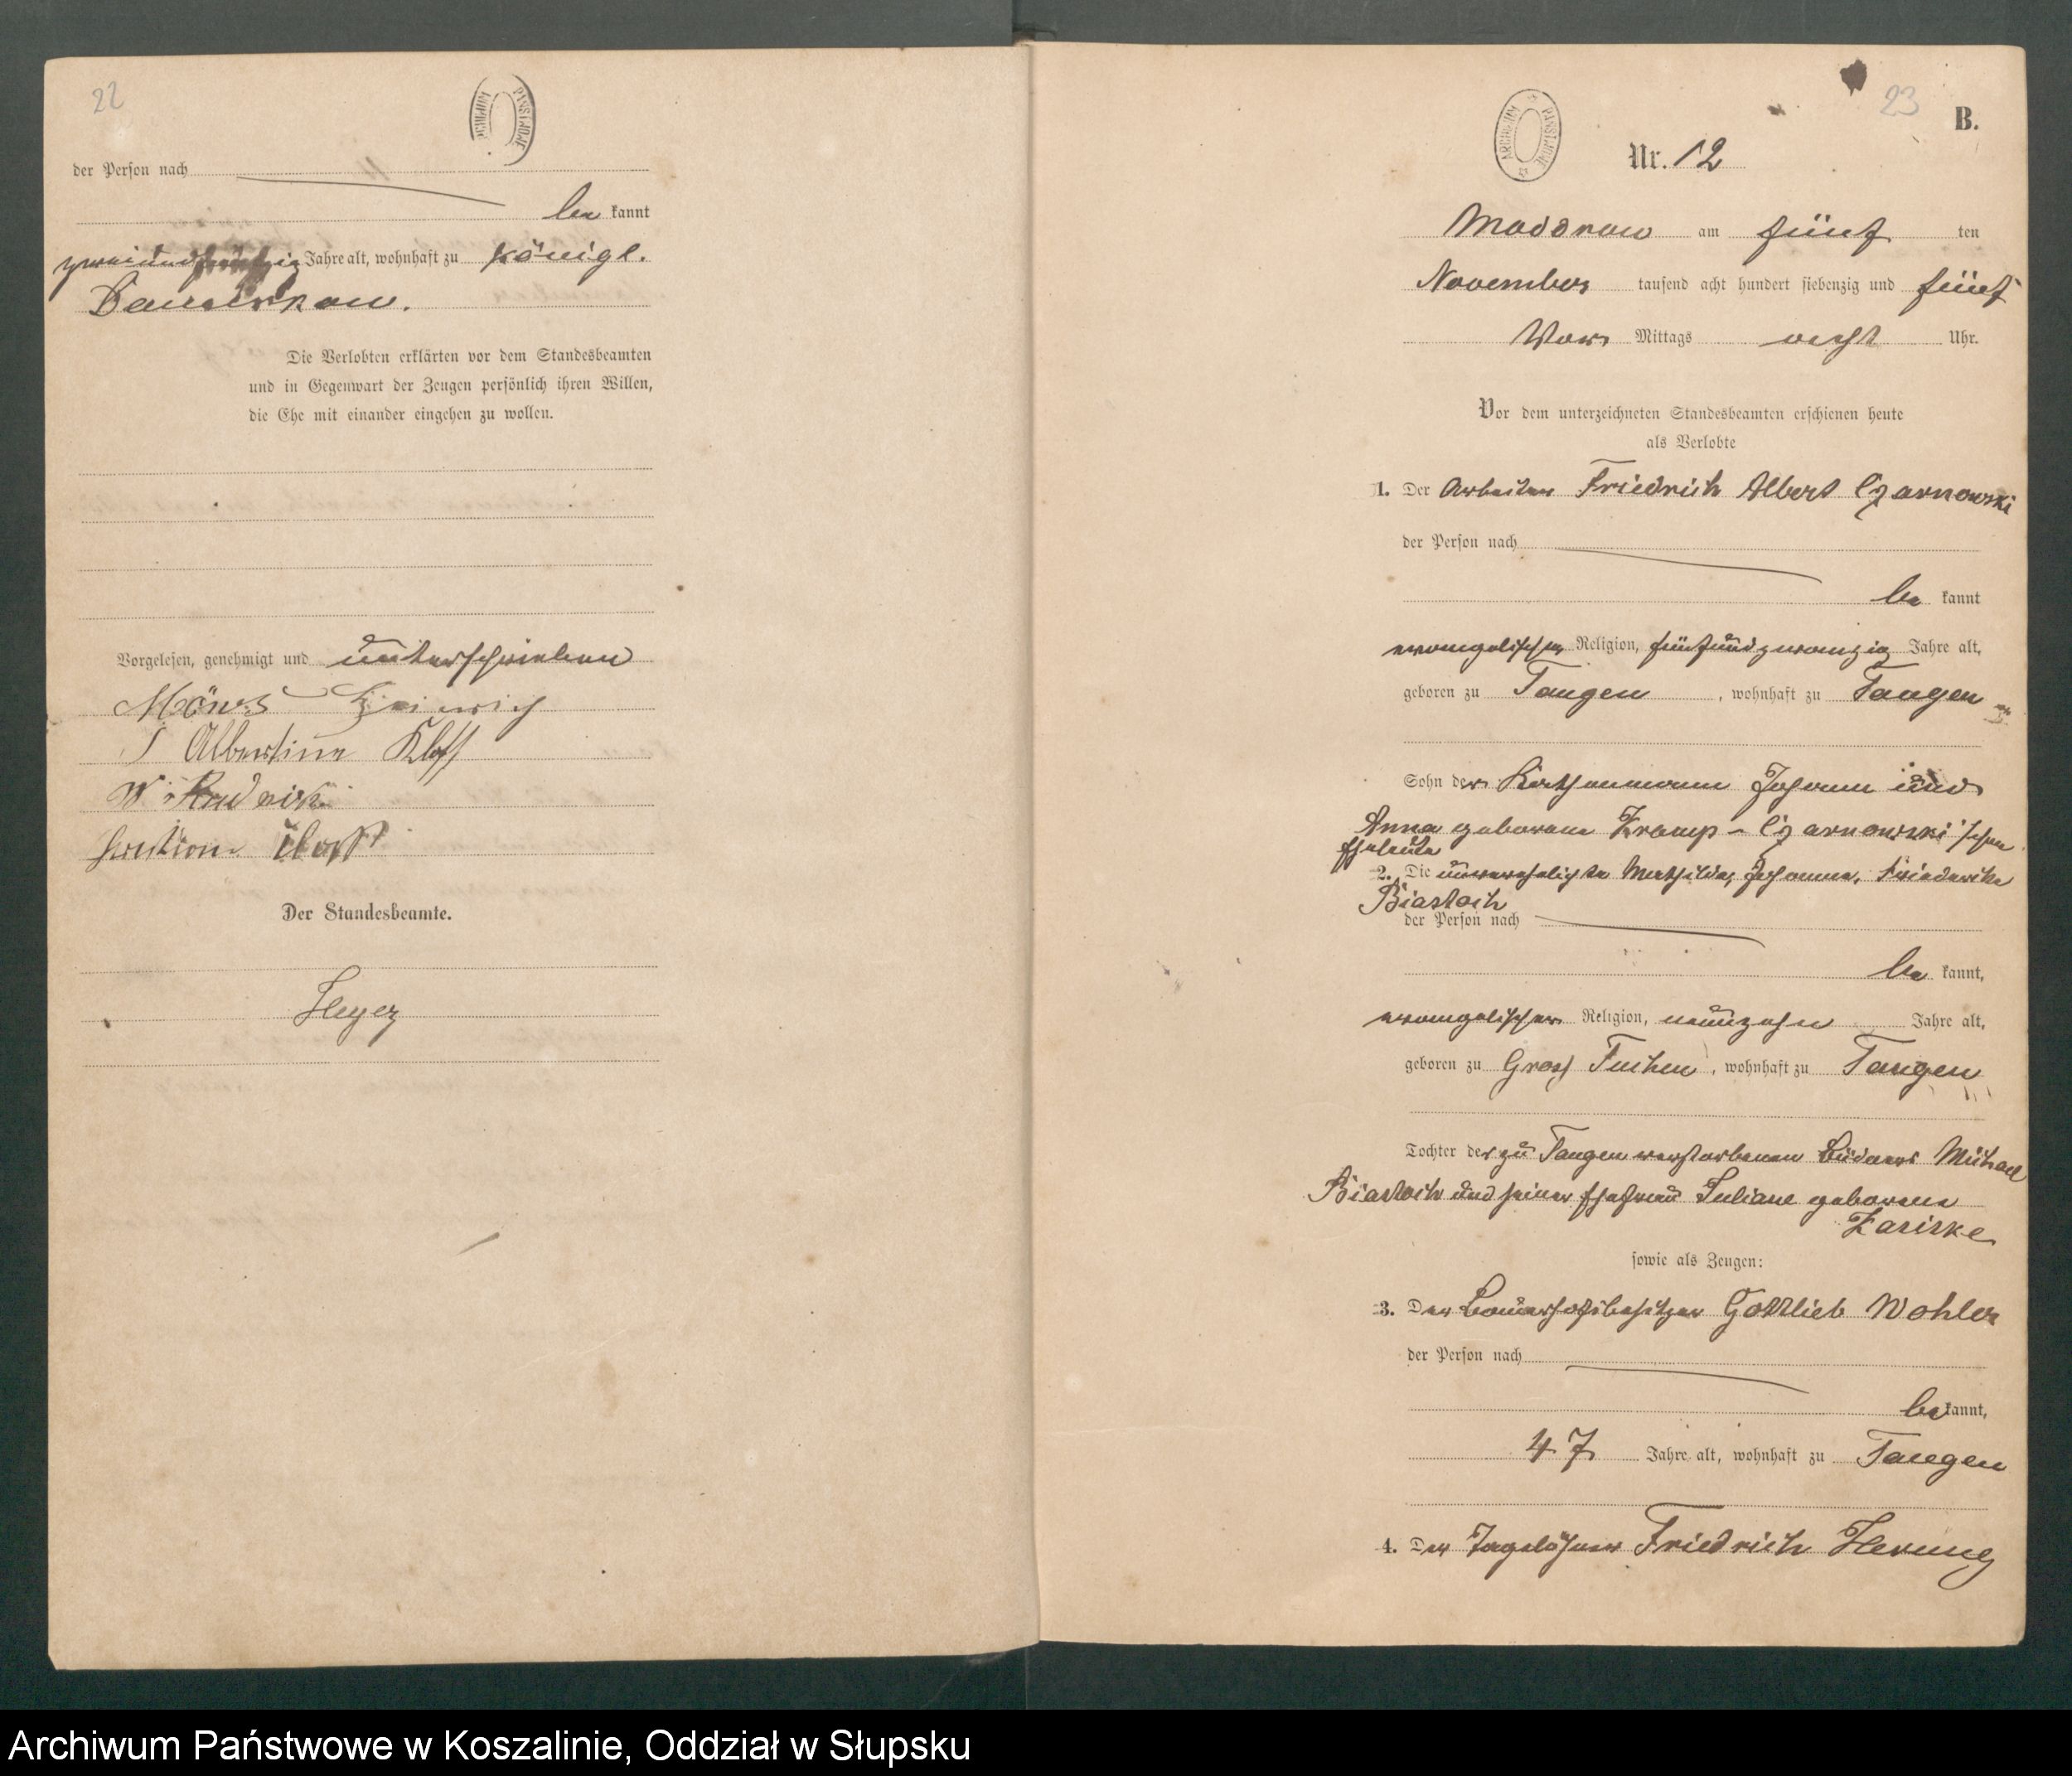 22
ARCHIWUM PAŃSTWOWE
der Person nach
be kannt
zweiundfünfzig Jahre alt, wohnhaft zu Königl.
Damerkow.
Die Verlobten erklärten vor dem Standesbeamten
und in Gegenwart der Zeugen persönlich ihren Willen,
die Ehe mit einander eingehen zu wollen.
Vorgelesen, genehmigt und unterschrieben
Heinrich
Albertine Kloß
W
Der Standesbeamte.
Heyer
23
B.
ARCHIWUM PAŃSTWOWE
Nr. 12
Moddrow am fünf ten
November tausend acht hundert siebenzig und fünf
Vor Mittags acht Uhr.
Vor dem unterzeichneten Standesbeamten erschienen heute
als Verlobte
1. Der Arbeiter Friedrich Albert Czarnowski
der Person nach
be kannt
evangelischer Religion, fünfundzwanzig Jahre alt,
geboren zu Tangen, wohnhaft zu Tangen
Sohn der Kathenmann Johann und
Anna geborene Kramp-Czarnowski'schen
Eheleute
2. Die unverehelichte Mathilde, Johanna, Friederike
Biastoch
der Person nach
be kannt,
evangelischer Religion, neunzehn Jahre alt,
geboren zu Gross Tuchen, wohnhaft zu Tangen
Tochter des zu Tangen verstorbenen Büdners Michael
Biastoch und seiner Ehefrau Juliane geborene
Zasiske
sowie als Zeugen:
3. Der Bauerhofsbesitzer Gottlieb Wohler
der Person nach
be kannt,
47 Jahre alt, wohnhaft zu Tangen
4. Der Tagelöhner Friedrich Herung
Archiwum Państwowe w Koszalinie, Oddział w Słupsku